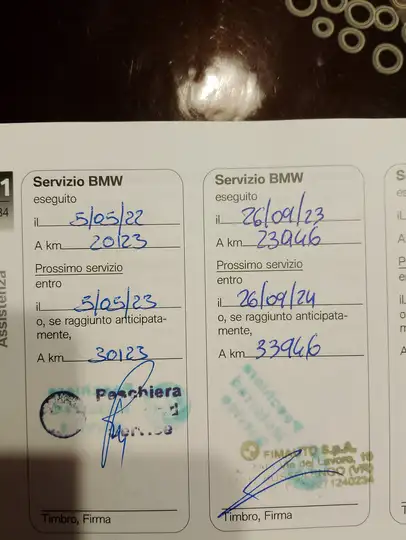 1
34
Assistenza
Servizio BMW
eseguito
il 5/05/22
A km 20123
Prossimo servizio
entro
il 5/05/23
o, se raggiunto anticipata-
mente,
A km 30123
Peschiera
Timbro, Firma
Servizio BMW
eseguito
il 26/09/23
A km 23946
Prossimo servizio
entro
il 26/09/24
o, se raggiunto anticipata-
mente,
A km 33946
FIMAUTO S.p.A.
Timbro, Firma